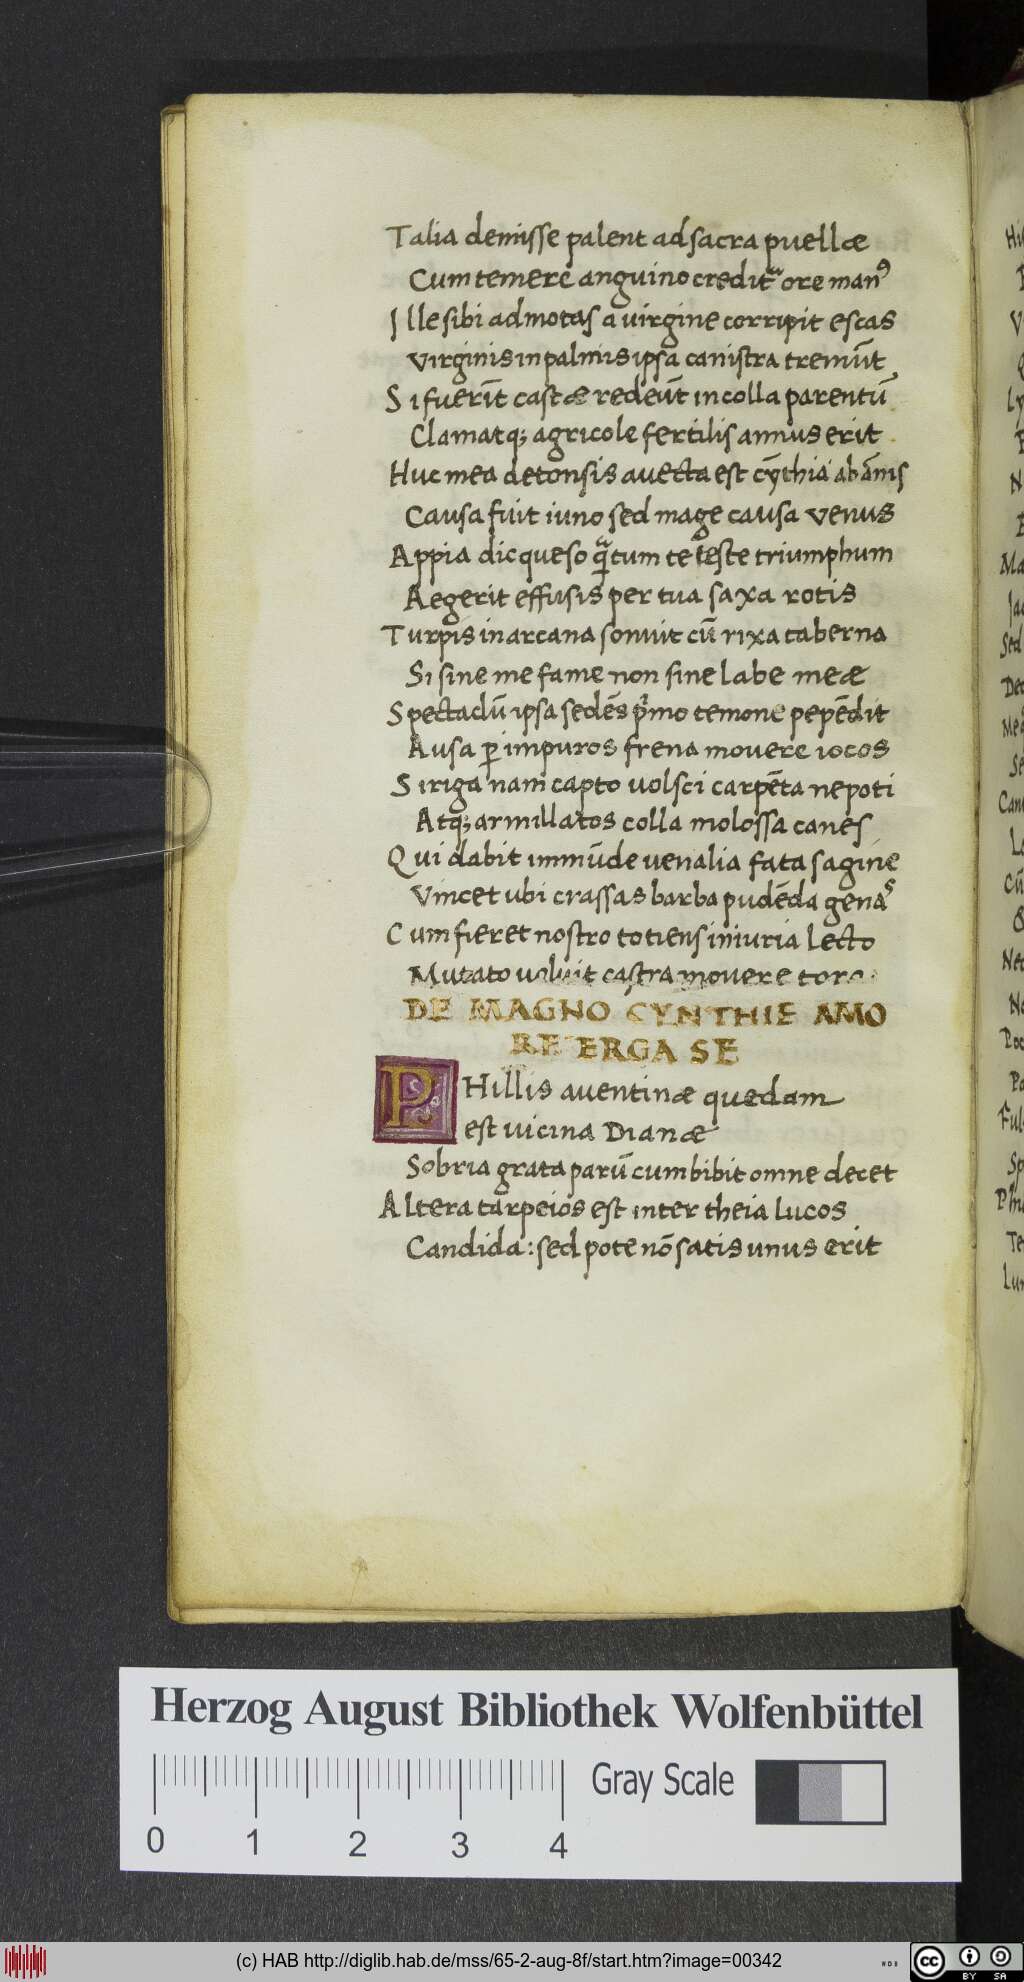 Talia demisse palent ad sacra puellæ
Cum temere anguino creditᵃ ore manꝰ
Ille sibi admotas a virgine corripit escas
Virginis in palmis ipsa canistra tremūt
Si fuerīt castæ redeūt in colla parentū
Clamatq; agricole fertilis annus erit
Huc mea detonsis avecta est cȳthia ab ānis
Causa fuit iuno sed mage causa venus
Appia dic queso qᵃ̄tum te teste triumphum
Aegerit effusis per tua saxa rotis
Turpis in arcana sonuit cū rixa taberna
Si sine me fame non sine labe meæ
Spectaclū ipsa sedēs pⁱmo temone pepēdit
Ausa ꝑ impuros frena movere iocos
Siriga nam capto volsci carpēta nepoti
Atq; armillatos colla molossa canes
Qui dabit immūde venalia fata sagine
Vincet ubi crassas barba pudēda genas
Cum fieret nostro totiens iniuria lecto
Mutato voluit castra movere toro
DE MAGNO CYNTHIE AMO
RE ERGA SE
PHillis aventinæ quedam
est vicina Dianæ
Sobria grata parū cum bibit omne decet
Altera tarpeios est inter theia lucos
Candida: sed pote nō satis unus erit
Herzog August Bibliothek Wolfenbüttel
Gray Scale
0 1 2 3 4
(c) HAB http://diglib.hab.de/mss/65-2-aug-8f/start.htm?image=00342
cc BY SA